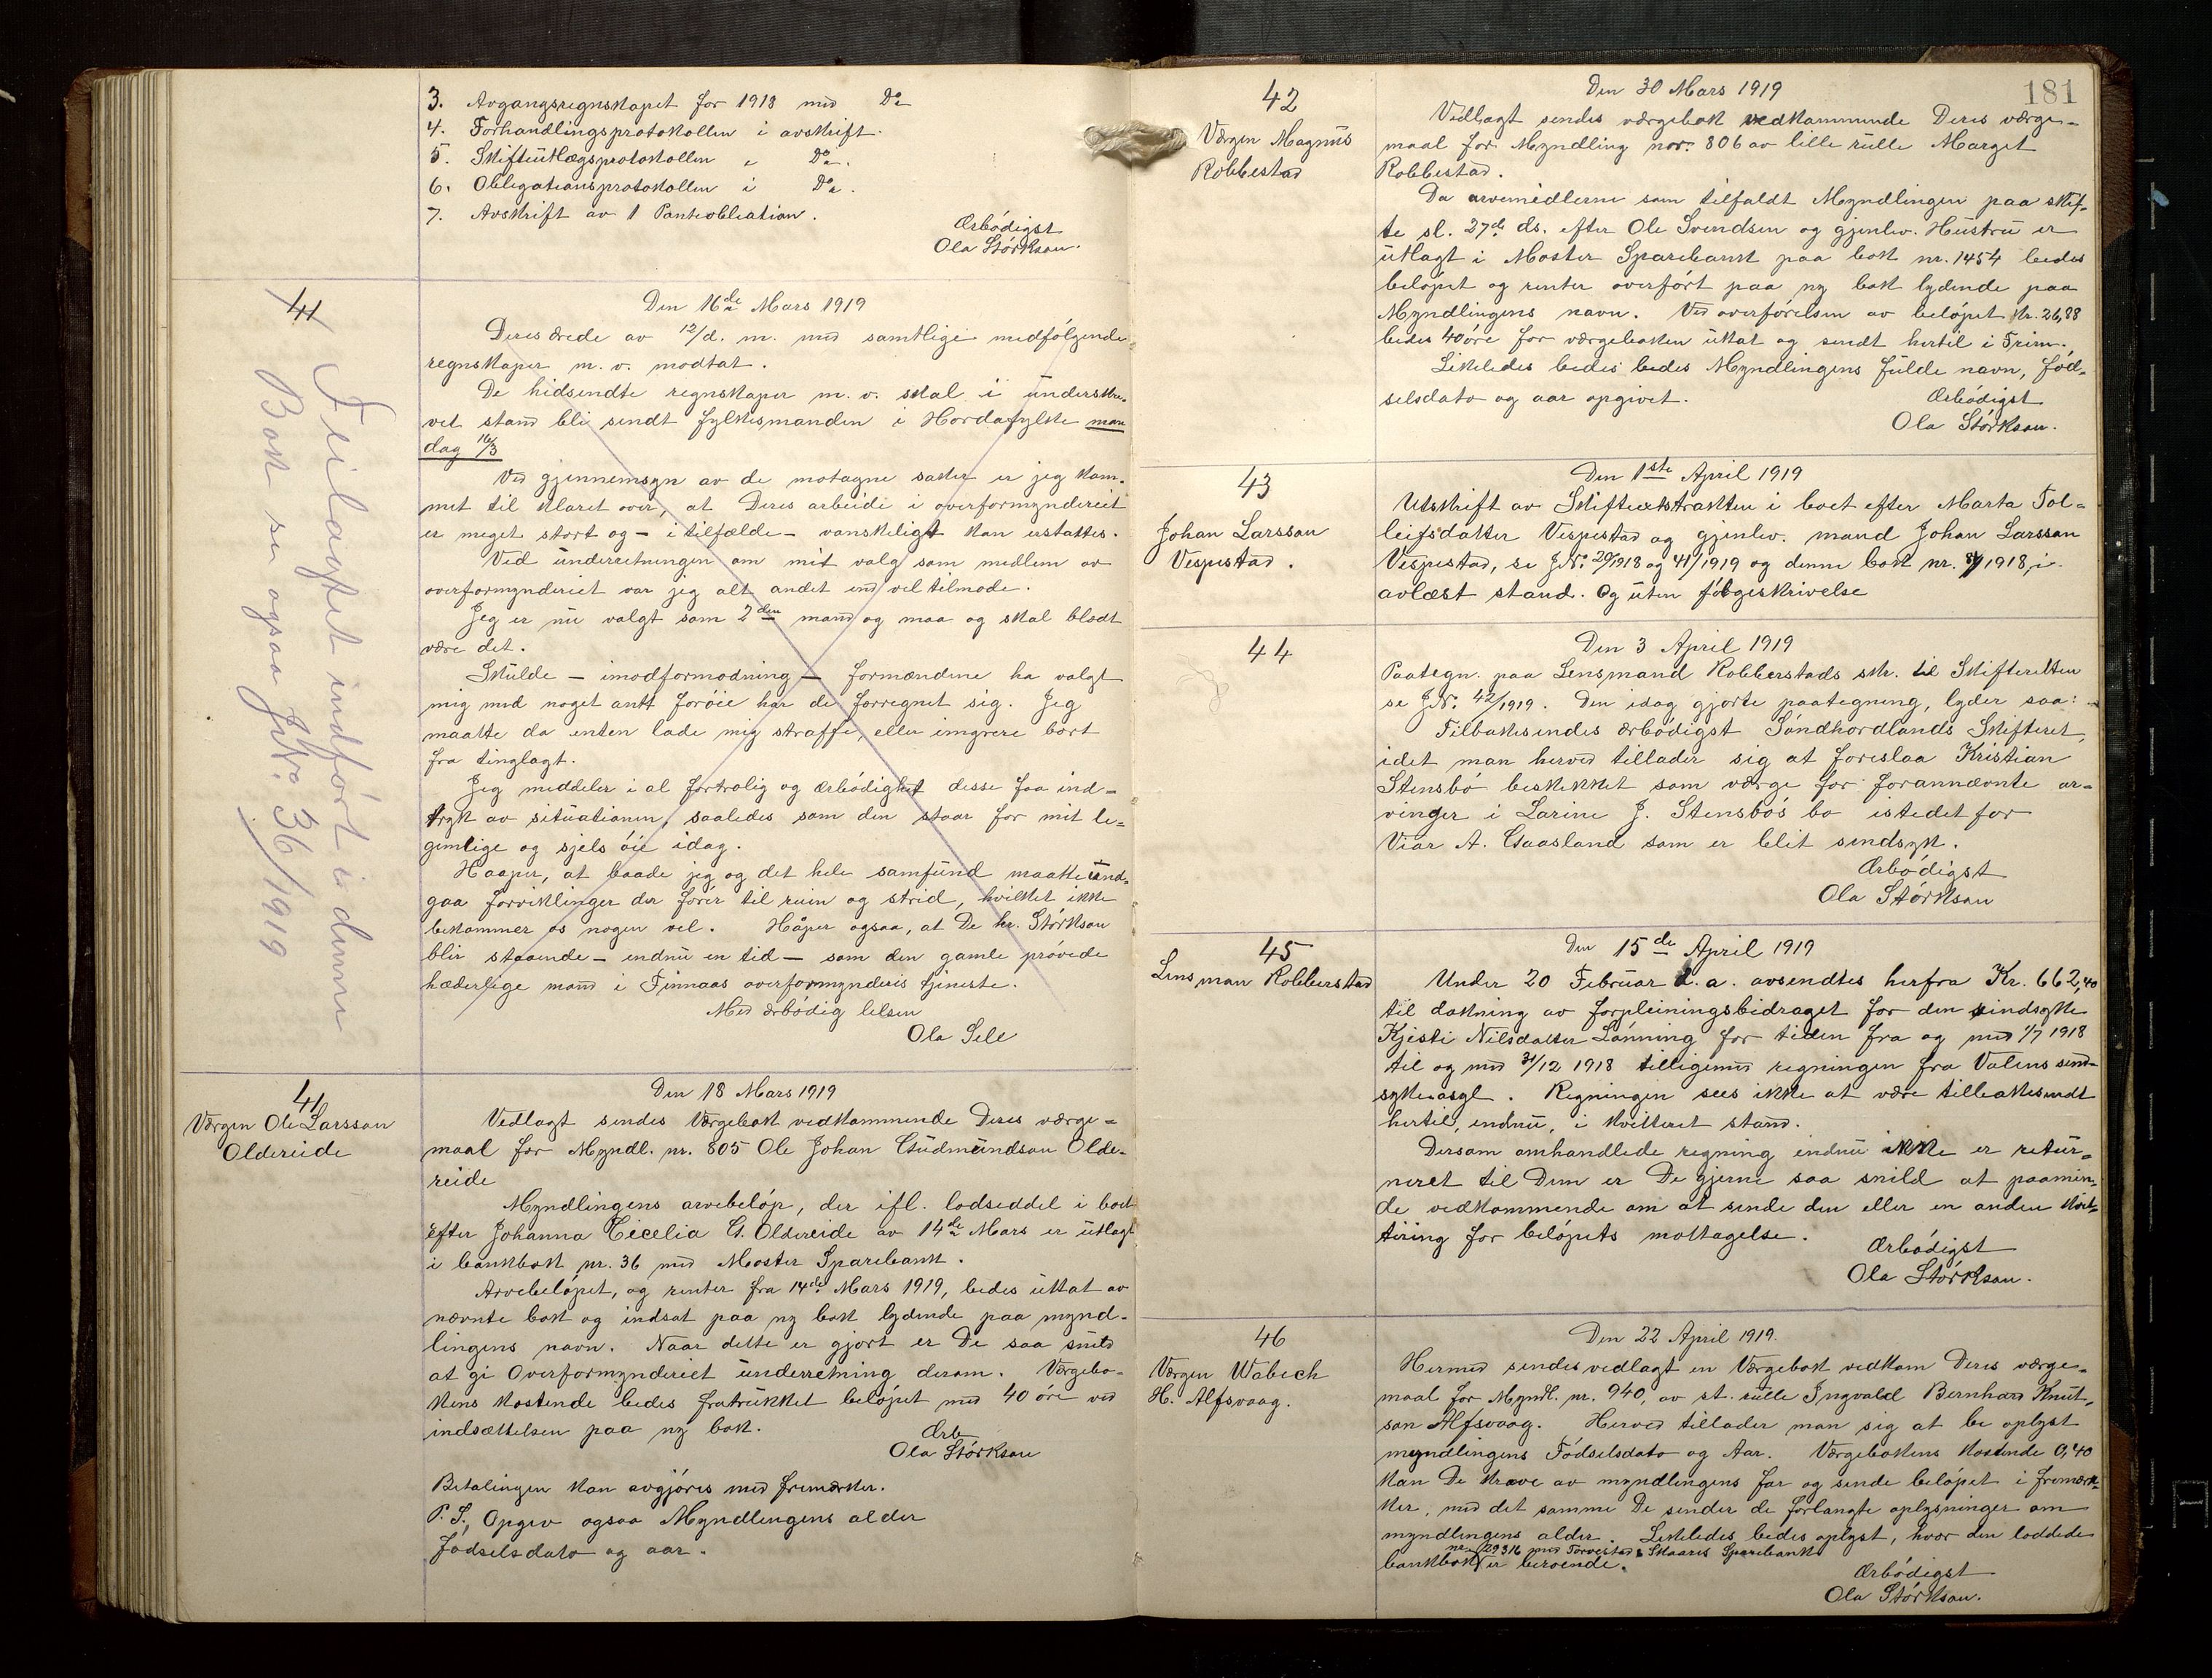 3. Avgangsregnskapet for 1918 med Do
4. Forhandlingsprotokollen i avskrift.
5. Skifteutlægsprotokollen i Do.
6. Obligationsprotokollen i Do.
7. Avskrift av 1 Panteobliation.
Ærbödigst
Ola Störkson.
41
Feilagtet indfört i denne
Bok se ogsaa JNo. 36/1919
Den 16de Mars 1919
Deres ærede av 12/d. m. med samtlige medfölgende
regnskaper m. v. modtat.
De hidsendte regnskaper m. v. skal i underskre-
vet stand bli sendt fylkesmanden i Hordafylke man
dag 16/3
Ved gjennemsyn av de motagne saker er jeg kom-
met til klaret over, at Deres arbeide i overformynderiet
er meget stort og - i tilfælde - vanskeligt kan erstattes.
Ved underretningen om mit valg som medlem av
overformynderiet var jeg alt andet end vel tilmode.
Jeg er nu valgt som 2den mand og maa og skal blodt
være det.
Skulde - imodformodning - formændene ha valgt
mig med noget antt foröie har de forregnet sig. Jeg
maatte da enten lade mig straffe, eller imgrere bort
fra tinglagt.
Jeg meddeler i al fortrolig og ærbödighet desse faa ind-
tryk av situationen, saaledes som den staar for mit le-
gemlige og sjels öie idag.
Haaper, at baade jeg og det hele samfund maatte und-
gaa forviklinger der förer til ruin og strid, hvilket ikke
bekommer os nogen vel. Håper ogsaa, at De hr. Störkson
blir staaende - endnu en tid - som den gamle prövede
hæderlige mand i Finnaas overformynderis tjeneste.
Med ærbödig hilsen
Ola Sele
41
Værgen Ole Larsson
Oldereide
Den 18 Mars 1919
Vedlagt sendes Værgebok vedkommende Deres værge-
maal for Myndl. nr. 805 Ole Johan Gudmundson Olde-
reide
Myndlingens arvebelöp, der ifl. lodseddel i boet
efter Johanna Cicelia G. Oldereide av 14de Mars er utlagt
i bankbok nr. 36 med Moster Sparebank.
Arvebelöpet, og renter fra 14de Mars 1919, bedes uttat av
nævnte bok og indsat paa ny bok lydende paa mynd-
lingens navn. Naar dette er gjort er De saa snild
at gi Overformynderiet underretning derom. Værgebo-
kens kostende bedes fratrukket belöpet med 40 öre ved
indsættelsen paa ny bok.
Ærb
Ola Störkson
Betalingen kan avgjöres med frimærker.
P. S., Opgiv ogsaa Myndlingens alder
Födselsdato og aar.
181
42
Værgen Magnus
Robbestad
Den 30 Mars 1919
Vedlagt sendes værgebok vedkommende Deres værge-
maal for Myndling nor. 806 av lille rulle Marget
Robbestad.
Da arvemidlerne som tilfaldt Myndlingen paa skif-
te sl. 27de ds. efter Ole Svendsen og gjenlev. Hustru er
utlagt i Moster Sparebank paa bok nr. 1454 bedes
belöpet og renter overfört paa ny bok lydende paa
Myndlingens navn. Ved overförelsen av belöpet kr. 26,88
bedes 40 öre for værgeboken uttat og sendt hertil i Frim.
Likeledes bedes bedes Myndlingens fulde navn, föd-
selsdato og aar opgivet.
Ærbödigst
Ola Störkson.
43
Johan Larsson
Vespestad.
Den 1ste April 1919
Utskrift av Skifteekstrakten i boet efter Marta Tol-
leifsdatter Vespestad og gjenlev. mand Johan Larsson
Vespestad, se JNo. 20/1918 og 41/1919 og denne bok nr. 1918, i
avlæst stand. Og uten fölgeskrivelse
44
Den 3 April 1919
Paategn. paa Lensmand Robberstads skr. til Skifteretten
se JNo. 42/1919. Den idag gjorte paategning, lyder saa:
Tilbakesendes ærbödigst Söndhordlands Skifteret,
idet man herved tillader sig at foreslaa Kristian
Stensbö beskikket som værge for forannævnte ar-
vinger i Larine J. Stensbö's bo istedet for
Viar A. Gaasland som er blit sindsyk.
Ærbödigst
Ola Störkson
45
Lensman Robberstad
Den 15de April 1919
Under 20 Februar d. a. avsendtes herfra Kr. 662,40
til dækning av forpleiningsbidraget for den sindsyke
Kjesti Nilsdatter Lönning for tiden fra og med 1/7 1918
til og med 31/12 1918 tilligemed regningen fra Valens sind-
sykeasyl. Regningen sees ikke at være tilbakesendt
hertil, endnu, i kvitteret stand.
Dersom omhandlede regning endnu ikke er retur-
neret til Dem er De gjerne saa snild at paamin-
de vedkommende om at sende den eller en anden kvit-
tering for belöpets mottagelse.
Ærbödigst
Ola Störkson.
46
Værgen Wabech
H. Alfsvaag.
Den 22 April 1919.
Hermed sendes vedlagt en Værgebok vedkom Deres værge-
maal for Myndl. nr. 940, av st. rulle Ingvald Bernhard Knut-
son Alfsvaag. Herved tillader man sig at be oplyst
myndlingens Födselsdato og Aar. Værgebokens kostende 0,40
kan De kræve av myndlingens far og sende belöpet i frimær-
ker, med det samme De sender de forlangte oplysninger om
myndlingens alder. Likeledes bedes oplyst, hvor den loddede
nr. 29316 med Torvestad & Skaares Sparebank
bankbok er beroende.
Ærbödigst
Ola Störkson.